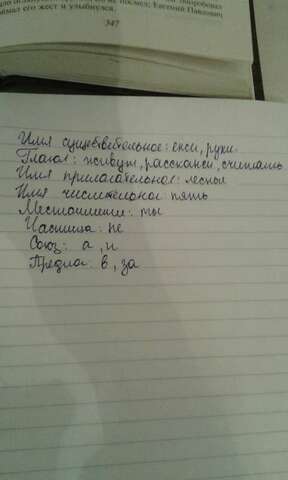 не посмел; Евгений Павлович
ймал его жест и улыбнулся.
347
Имя существительное: ежи, руки.
Глагол: живут, расскажи, считать
Имя прилагательное: лесные
Имя числительное пять
Местоимение: ты
Частица: не
Союз: а, и
Предлог: в, за